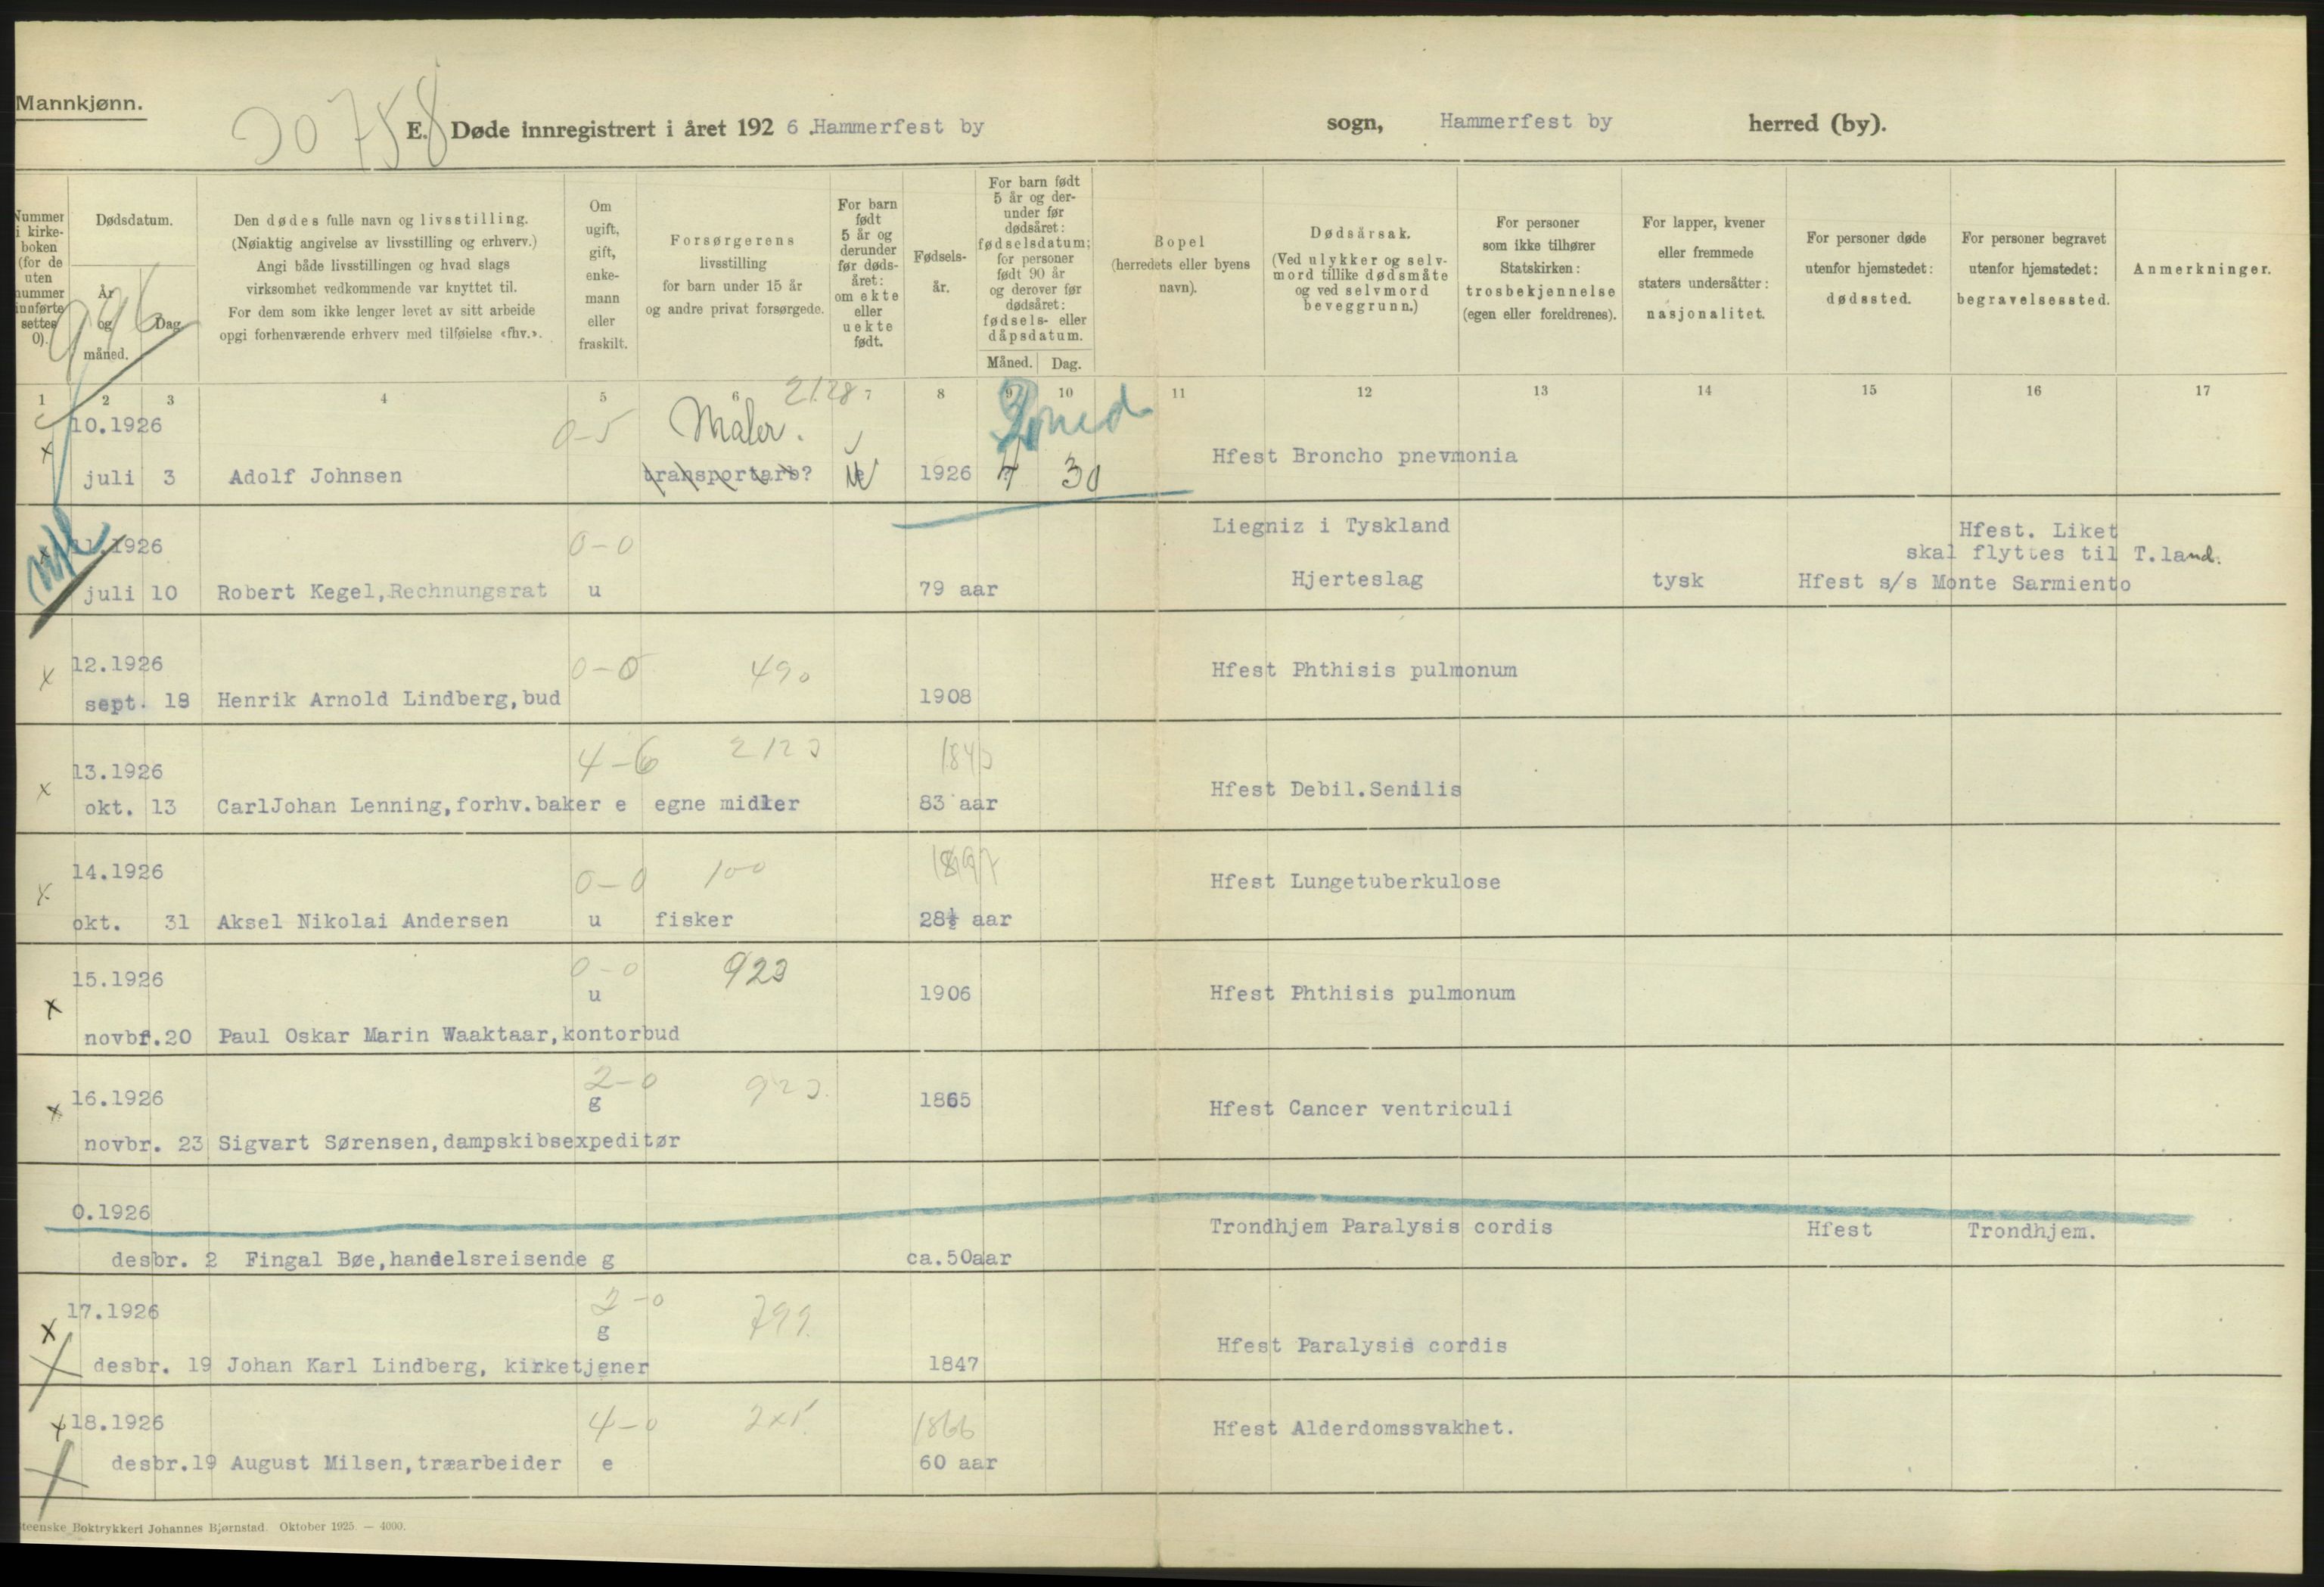 Mannkjønn.
20758
E. Døde innregistrert i året 192 6 . Hammerfest by sogn, Hammerfest by herred (by).
Nummer i kirke-boken (for de uten nummer innførte settes 0).
Dødsdatum.
År og måned.
Dag.
Den dødes fulle navn og livsstilling.
(Nøiaktig angivelse av livsstilling og erhverv.)
Angi både livsstillingen og hvad slags
virksomhet vedkommende var knyttet til.
For dem som ikke lenger levet av sitt arbeide
opgi forhenværende erhverv med tilføielse «fhv.».
Om
ugift,
gift,
enke-
mann
eller
fraskilt.
Forsørgerens
livsstilling
for barn under 15 år
og andre privat forsørgede.
For barn
født
5 år og
derunder
før døds-
året:
om ekte
eller
uekte
født.
Fødsels-
år.
For barn født
5 år og der-
under før
dødsåret:
fødselsdatum;
for personer
født 90 år
og derover før
dødsåret:
fødsels- eller
dåpsdatum.
Måned. Dag.
Bopel
(herredets eller byens
navn).
Dødsårsak.
(Ved ulykker og selv-
mord tillike dødsmåte
og ved selvmord
beveggrunn.)
For personer
som ikke tilhører
Statskirken:
trosbekjennelse
(egen eller foreldrenes).
For lapper, kvener
eller fremmede
staters undersåtter:
nasjonalitet.
For personer døde
utenfor hjemstedet:
dødssted.
For personer begravet
utenfor hjemstedet:
begravelsessted.
Anmerkninger.
1 2 3 4 5 6 7 8 9 10 11 12 13 14 15 16 17
2128
10.1926 0-5 Maler.
Hfest Broncho pnevmonia
x juli 3 Adolf Johnsen transportarb? 1926 4 30
Liegniz i Tyskland Hfest. Liket
11.1926 0-0 skal flyttes til T.land.
juli 10 Robert Kegel, Rechnungsrat u 79 aar Hjerteslag tysk Hfest s/s Monte Sarmiento
x 12.1926 0-0 490 Hfest Phthisis pulmonum
sept. 18 Henrik Arnold Lindberg, bud 1908
4-6 212
x 13.1926 Hfest Debil.Senilis
okt. 13 CarlJohan Lenning, forhv.baker e egne midler 83 aar
x 14.1926 0-0 100 1897 Hfest Lungetuberkulose
okt. 31 Aksel Nikolai Andersen u fisker 28½ aar
15.1926 0-0 923
x u 1906 Hfest Phthisis pulmonum
novbr.20 Paul Oskar Marin Waaktaar, kontorbud
2-0 923.
x 16.1926 g 1865 Hfest Cancer ventriculi
novbr. 23 Sigvart Sørensen, dampskibsexpeditør
0.1926 Trondhjem Paralysis cordis Hfest Trondhjem.
desbr. 2 Fingal Bøe, handelsreisende g ca.50aar
17.1926 2-0 799.
x g Hfest Paralysis cordis
desbr. 19 Johan Karl Lindberg, kirketjener 1847
x 18.1926 4-0 1866 Hfest Alderdomssvakhet.
desbr.19 August Milsen, træarbeider e 60 aar
teenske Boktrykkeri Johannes Bjørnstad. Oktober 1925. — 4000.